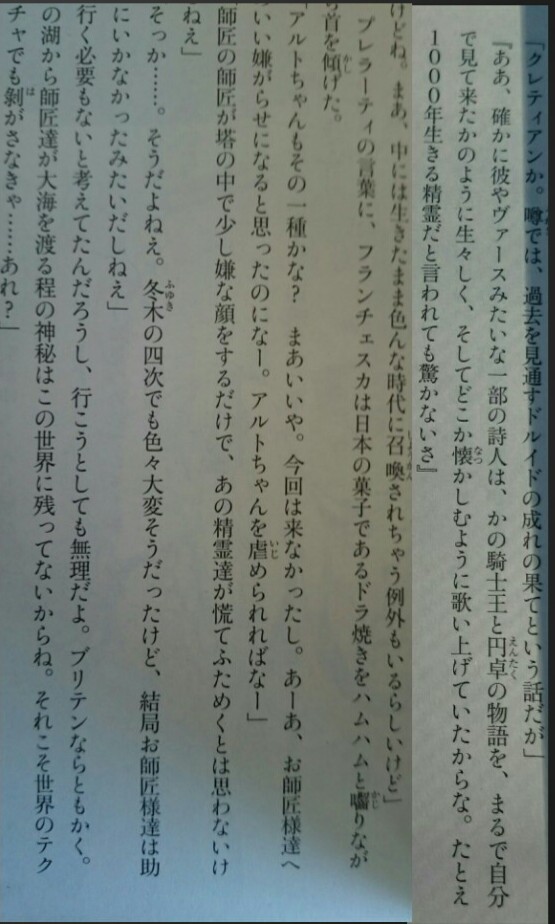 「クレティアンか。噂では、過去を見通すドルイドの成れの果てという話だが」
『ああ、確かに彼やヴァースみたいな一部の詩人は、かの騎士王と円卓の物語を、まるで自分
で見て来たかのように生々しく、そしてどこか懐かしむように歌い上げていたからな。たとえ
1000年生きる精霊だと言われても驚かないさ』
けどね。まあ、中には生きたまま色んな時代に召喚されちゃう例外もいるらしいけど」
プレラーティの言葉に、フランチェスカは日本の菓子であるドラ焼きをハムハムと囓りなが
ら首を傾げた。
「アルトちゃんもその一種かな？　まあいいや。今回は来なかったし。あーあ、お師匠様達へ
いい嫌がらせになると思ったのになー。アルトちゃんを虐められればなー」
師匠の師匠が塔の中で少し嫌な顔をするだけで、あの精霊達が慌てふためくとは思わないけ
ねえ」
そっか……。そうだよねえ。冬木の四次でも色々大変そうだったけど、結局お師匠様達は助
にいかなかったみたいだしねえ」
行く必要もないと考えてたんだろうし、行こうとしても無理だよ。ブリテンならともかく。
の湖から師匠達が大海を渡る程の神秘はこの世界に残ってないからね。それこそ世界のテク
チャでも剝がさなきゃ……あれ？」